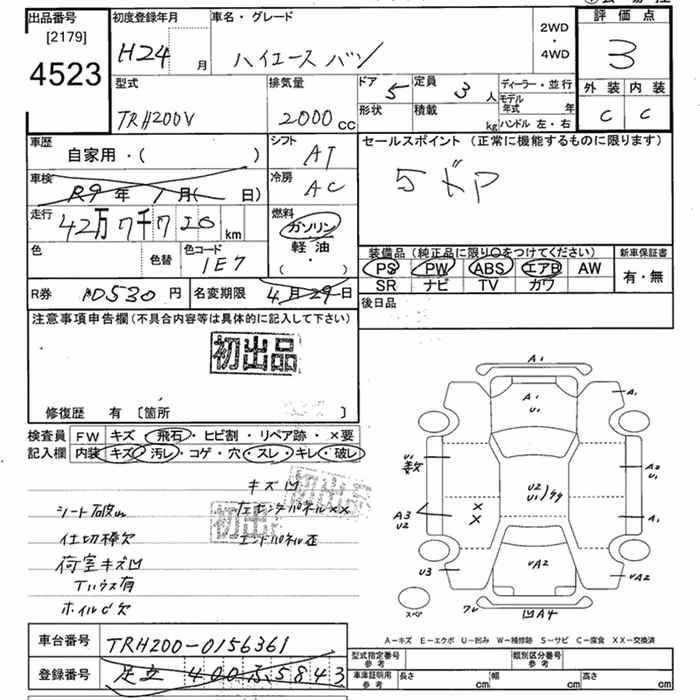 出品番号 初度登録年月 車名・グレード 2WD・4WD 評価点
[2179]
4523 H24 月 ハイエース バン 3
型式 排気量 ドア 5 定員 3人 ディーラー・並行 外装 内装
TRH200V 2000cc 形状 積載 kg モデル年式 年 ハンドル 左・右 C C
車歴 シフト セールスポイント (正常に機能するものに限ります)
自家用・( ) AT 5ドア
車検 R9年1月( 日) 冷房 AC
走行 42万7千7 km 燃料 ガソリン
軽油
( ・ )
色 色替 色コード 1E7
装備品 (純正品に限り○をつけてください) 新車保証書
PS PW ABS エアB AW 有・無
SR ナビ TV カワ
R券 530円 名変期限 4月29日 後日品
注意事項申告欄 (不具合内容等は具体的に記入して下さい)
初出品
修復歴 有 [箇所 ]
検査員 FW キズ 飛石・ヒビ割・リペア跡・×要
記入欄 内装 キズ・汚レ・コゲ・穴・スレ・キレ・破レ
キズ凹
初出品
シート破レ 左センタパネル××
初出品
仕切棒欠 エンドパネル歪
荷室キズ凹
Tハウス有
ホイルC欠
A1
A1
U1
A1
U1
A2
U1
U2
U1
××
A3
U2
A1
U3
UA2
UA2
スペア
凹A4
A－キズ E－エクボ U－凹み W－補修跡 S－サビ C－腐食 XX－交換済
車台番号 TRH200-0156361 型式指定番号 参考 類別区分番号 参考
登録番号 足立 400 ふ 5843 車庫証明用 参考 長さ cm 幅 cm 高さ cm